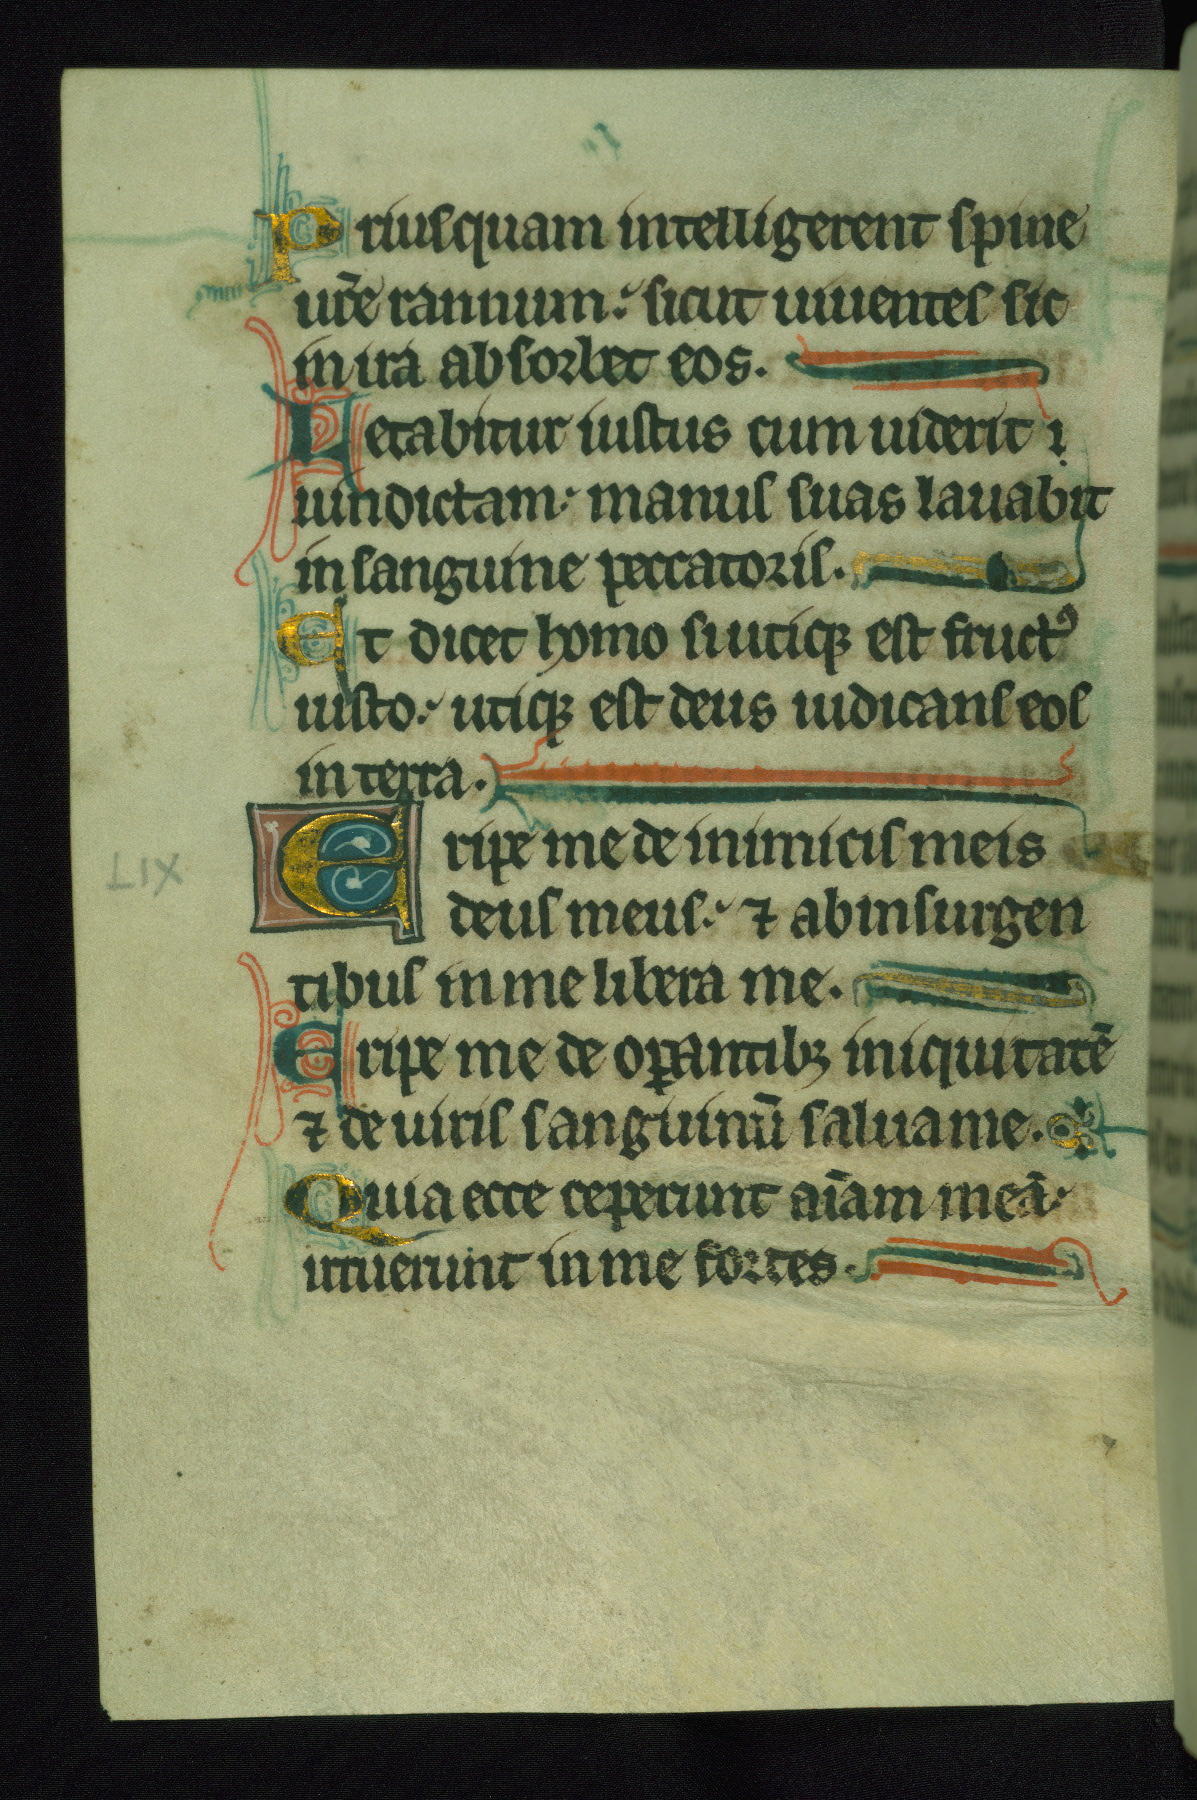 Priusquam intelligerent spine
ur̃e rannum: sicut uiuentes sic
in ira absorbet eos.
Letabitur iustus cum uiderit i
uindictam: manus suas lauabit
in sanguine peccatoris.
Et dicet homo si utiqꝫ est fructꝰ
iusto: utiqꝫ est deus iudicans eos
in terra.
Eripe me de inimicis meis
LIX
deus meus: ⁊ ab insurgen
tibus in me libera me.
Eripe me de oꝑantibꝫ iniquitatē
⁊ de uiris sanguinū salua me.
Quia ecce ceperunt aīam meā:
irruerunt in me fortes.